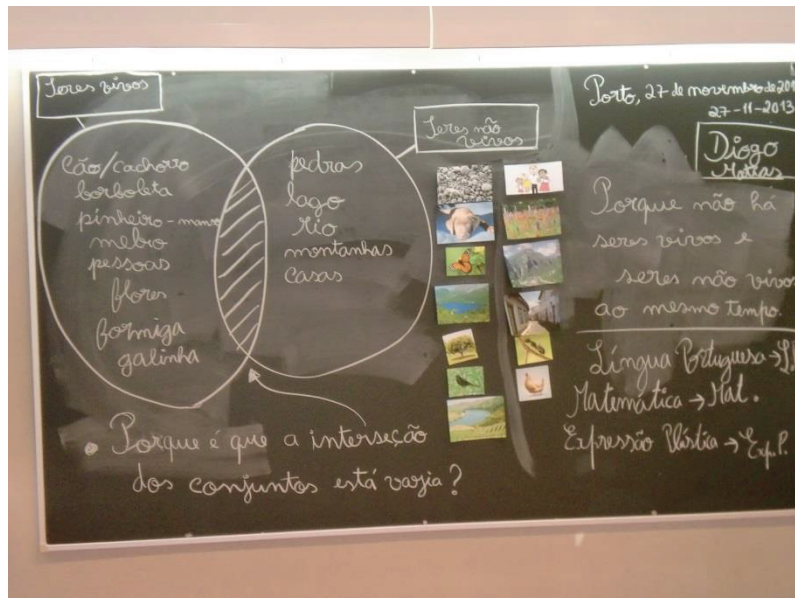 Seres vivos
Cão/cachorro
borboleta
pinheiro-manso
melro
pessoas
flores
formiga
galinha
Seres não
vivos
pedras
lago
rio
montanhas
casas
• Porque é que a interseção
dos conjuntos está vazia?
Porto, 27 de novembro de 201
27-11-2013
Diogo
Matias
Porque não há
seres vivos e
seres não vivos
ao mesmo tempo.
Língua Portuguesa → L.
Matemática → Mat.
Expressão Plástica → Exp. P.